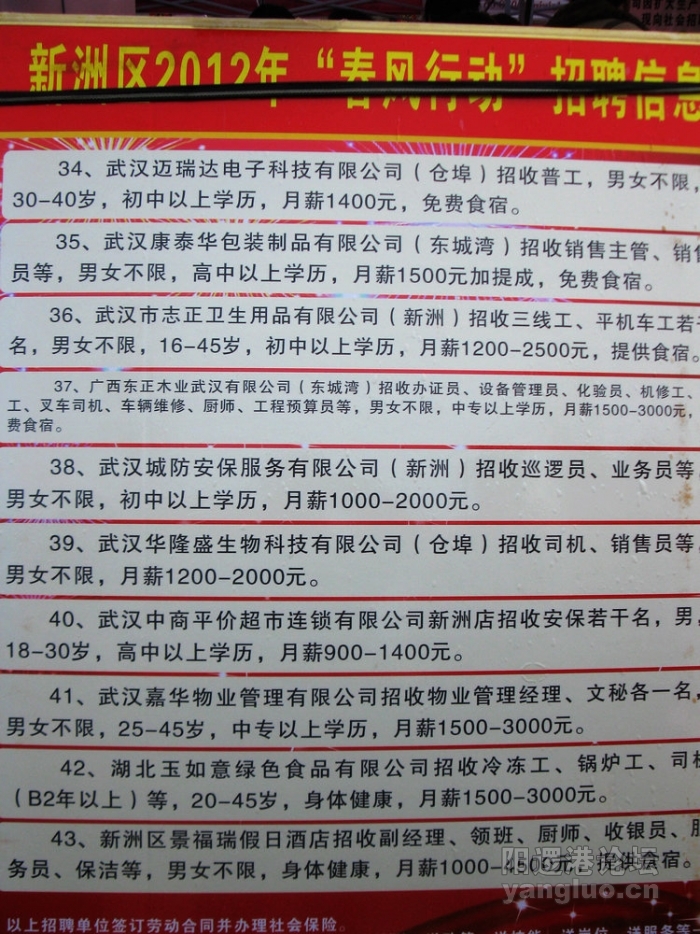 司因扩大生产
现向社会招
新洲区2012年“春风行动”招聘信息
34、武汉迈瑞达电子科技有限公司（仓埠）招收普工，男女不限，
30-40岁，初中以上学历，月薪1400元，免费食宿。
35、武汉康泰华包装制品有限公司（东城湾）招收销售主管、销售
员等，男女不限，高中以上学历，月薪1500元加提成，免费食宿。
36、武汉市志正卫生用品有限公司（新洲）招收三线工、平机车工若干
名，男女不限，16-45岁，初中以上学历，月薪1200-2500元，提供食宿。
37、广西东正木业武汉有限公司（东城湾）招收办证员、设备管理员、化验员、机修工、
工、叉车司机、车辆维修、厨师、工程预算员等，男女不限，中专以上学历，月薪1500-3000元，
费食宿。
38、武汉城防安保服务有限公司（新洲）招收巡逻员、业务员等，
男女不限，初中以上学历，月薪1000-2000元。
39、武汉华隆盛生物科技有限公司（仓埠）招收司机、销售员等，
男女不限，月薪1200-2000元。
40、武汉中商平价超市连锁有限公司新洲店招收安保若干名，男，
18-30岁，高中以上学历，月薪900-1400元。
41、武汉嘉华物业管理有限公司招收物业管理经理、文秘各一名，
男女不限，25-45岁，中专以上学历，月薪1500-3000元。
42、湖北玉如意绿色食品有限公司招收冷冻工、锅炉工、司机
（B2年以上）等，20-45岁，身体健康，月薪1500-3000元。
43、新洲区景福瑞假日酒店招收副经理、领班、厨师、收银员、服
务员、保洁等，男女不限，身体健康，月薪1000-4500元，提供食宿。
阳逻港论坛
yangluo.cn
以上招聘单位签订劳动合同并办理社会保险。
送岗位、送服务等